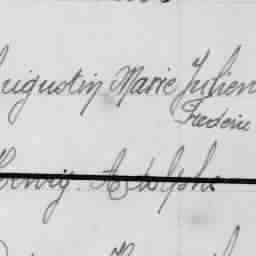 Augustin Marie Julien
Frederic
Henry. Adolphe